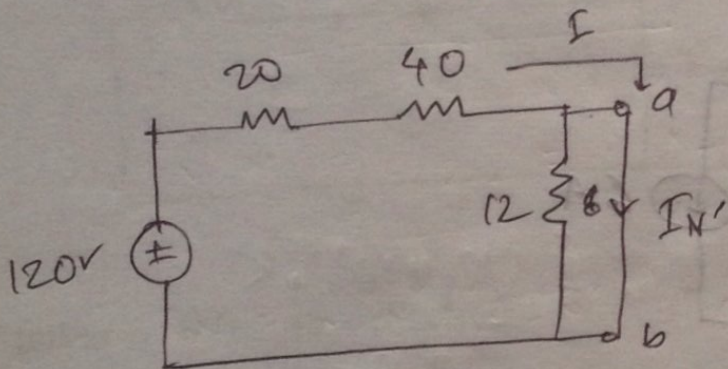 I
20 40
a
12 6 I_N'
120v
±
b